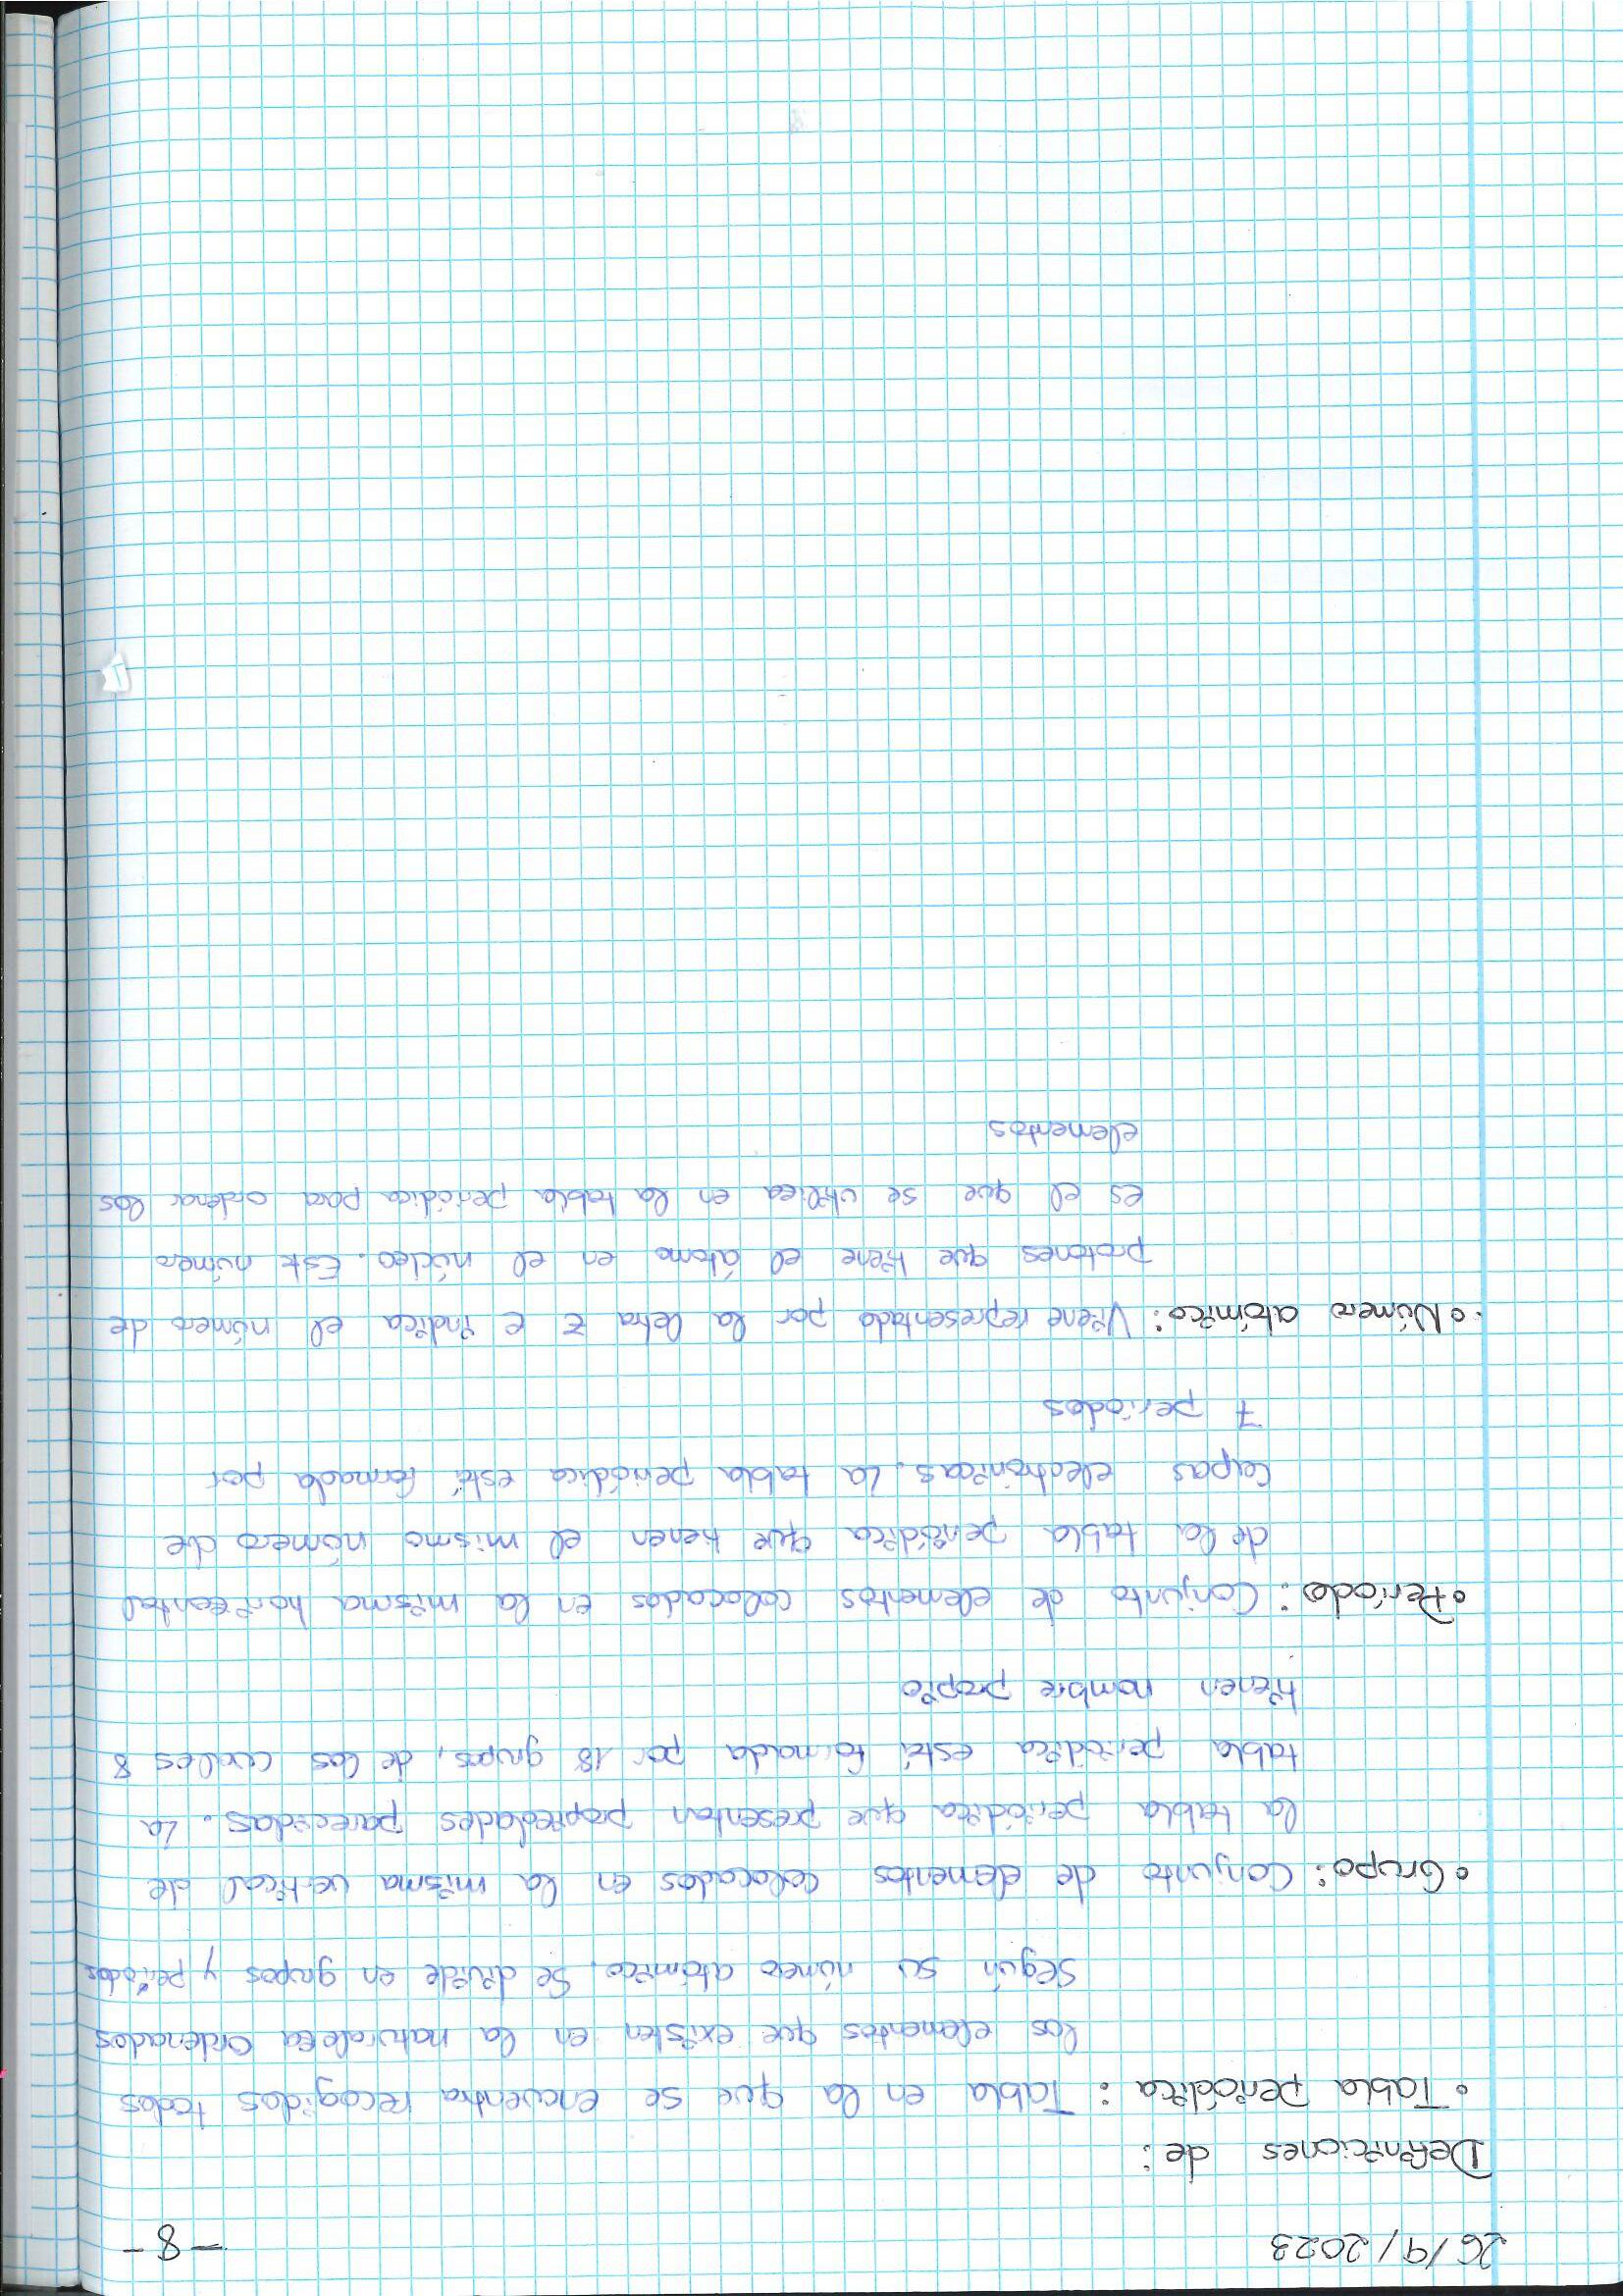 26/9/2023 -8-
Definiciones de:
• Tabla periódica: Tabla en la que se encuentra recogidos todos
los elementos que existen en la naturaleza ordenados
según su número atómico. Se divide en grupos y períodos
• Grupo: Conjunto de elementos colocados en la misma vertical de
la tabla periódica que presentan propiedades parecidas. La
tabla periódica está formada por 18 grupos, de los cuales 8
tienen nombre propio
• Período: Conjunto de elementos colocados en la misma horizontal
de la tabla periódica que tienen el mismo número de
capas electrónicas. La tabla periódica está formada por
7 períodos
• Número atómico: Viene representado por la letra Z e indica el número de
protones que tiene el átomo en el núcleo. Este número
es el que se utiliza en la tabla periódica para ordenar los
elementos